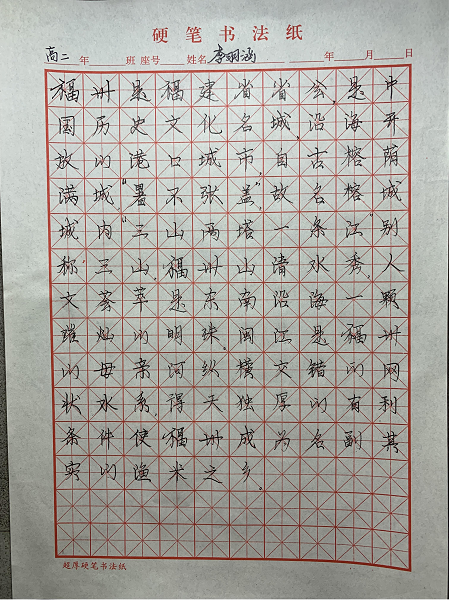 硬笔书法纸
高二 年 班 座号 姓名 李玥涵 年 月 日
福州是福建省省会,是中
国历史文化名城,沿海开
放的港口城市,自古榕荫
满城,"暑不张盖",故名榕城
城内"三山两塔一条江"别
称:三山,福州山清水秀,人
文荟萃,是东南沿海一颗
璀灿的明珠。闽江是福州
的母亲河纵横交错的网
状水系,得天独厚的有利
条件使福州成为名副其
实的渔米之乡。
超厚硬笔书法纸